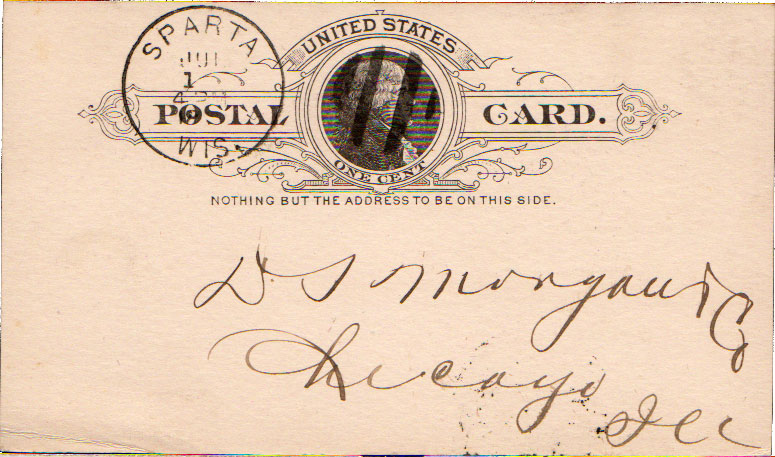 SPARTA
JUL
1
WIS.
UNITED STATES
POSTAL CARD.
ONE CENT
NOTHING BUT THE ADDRESS TO BE ON THIS SIDE.
D. S Morgan & Co
Chicago
Ill